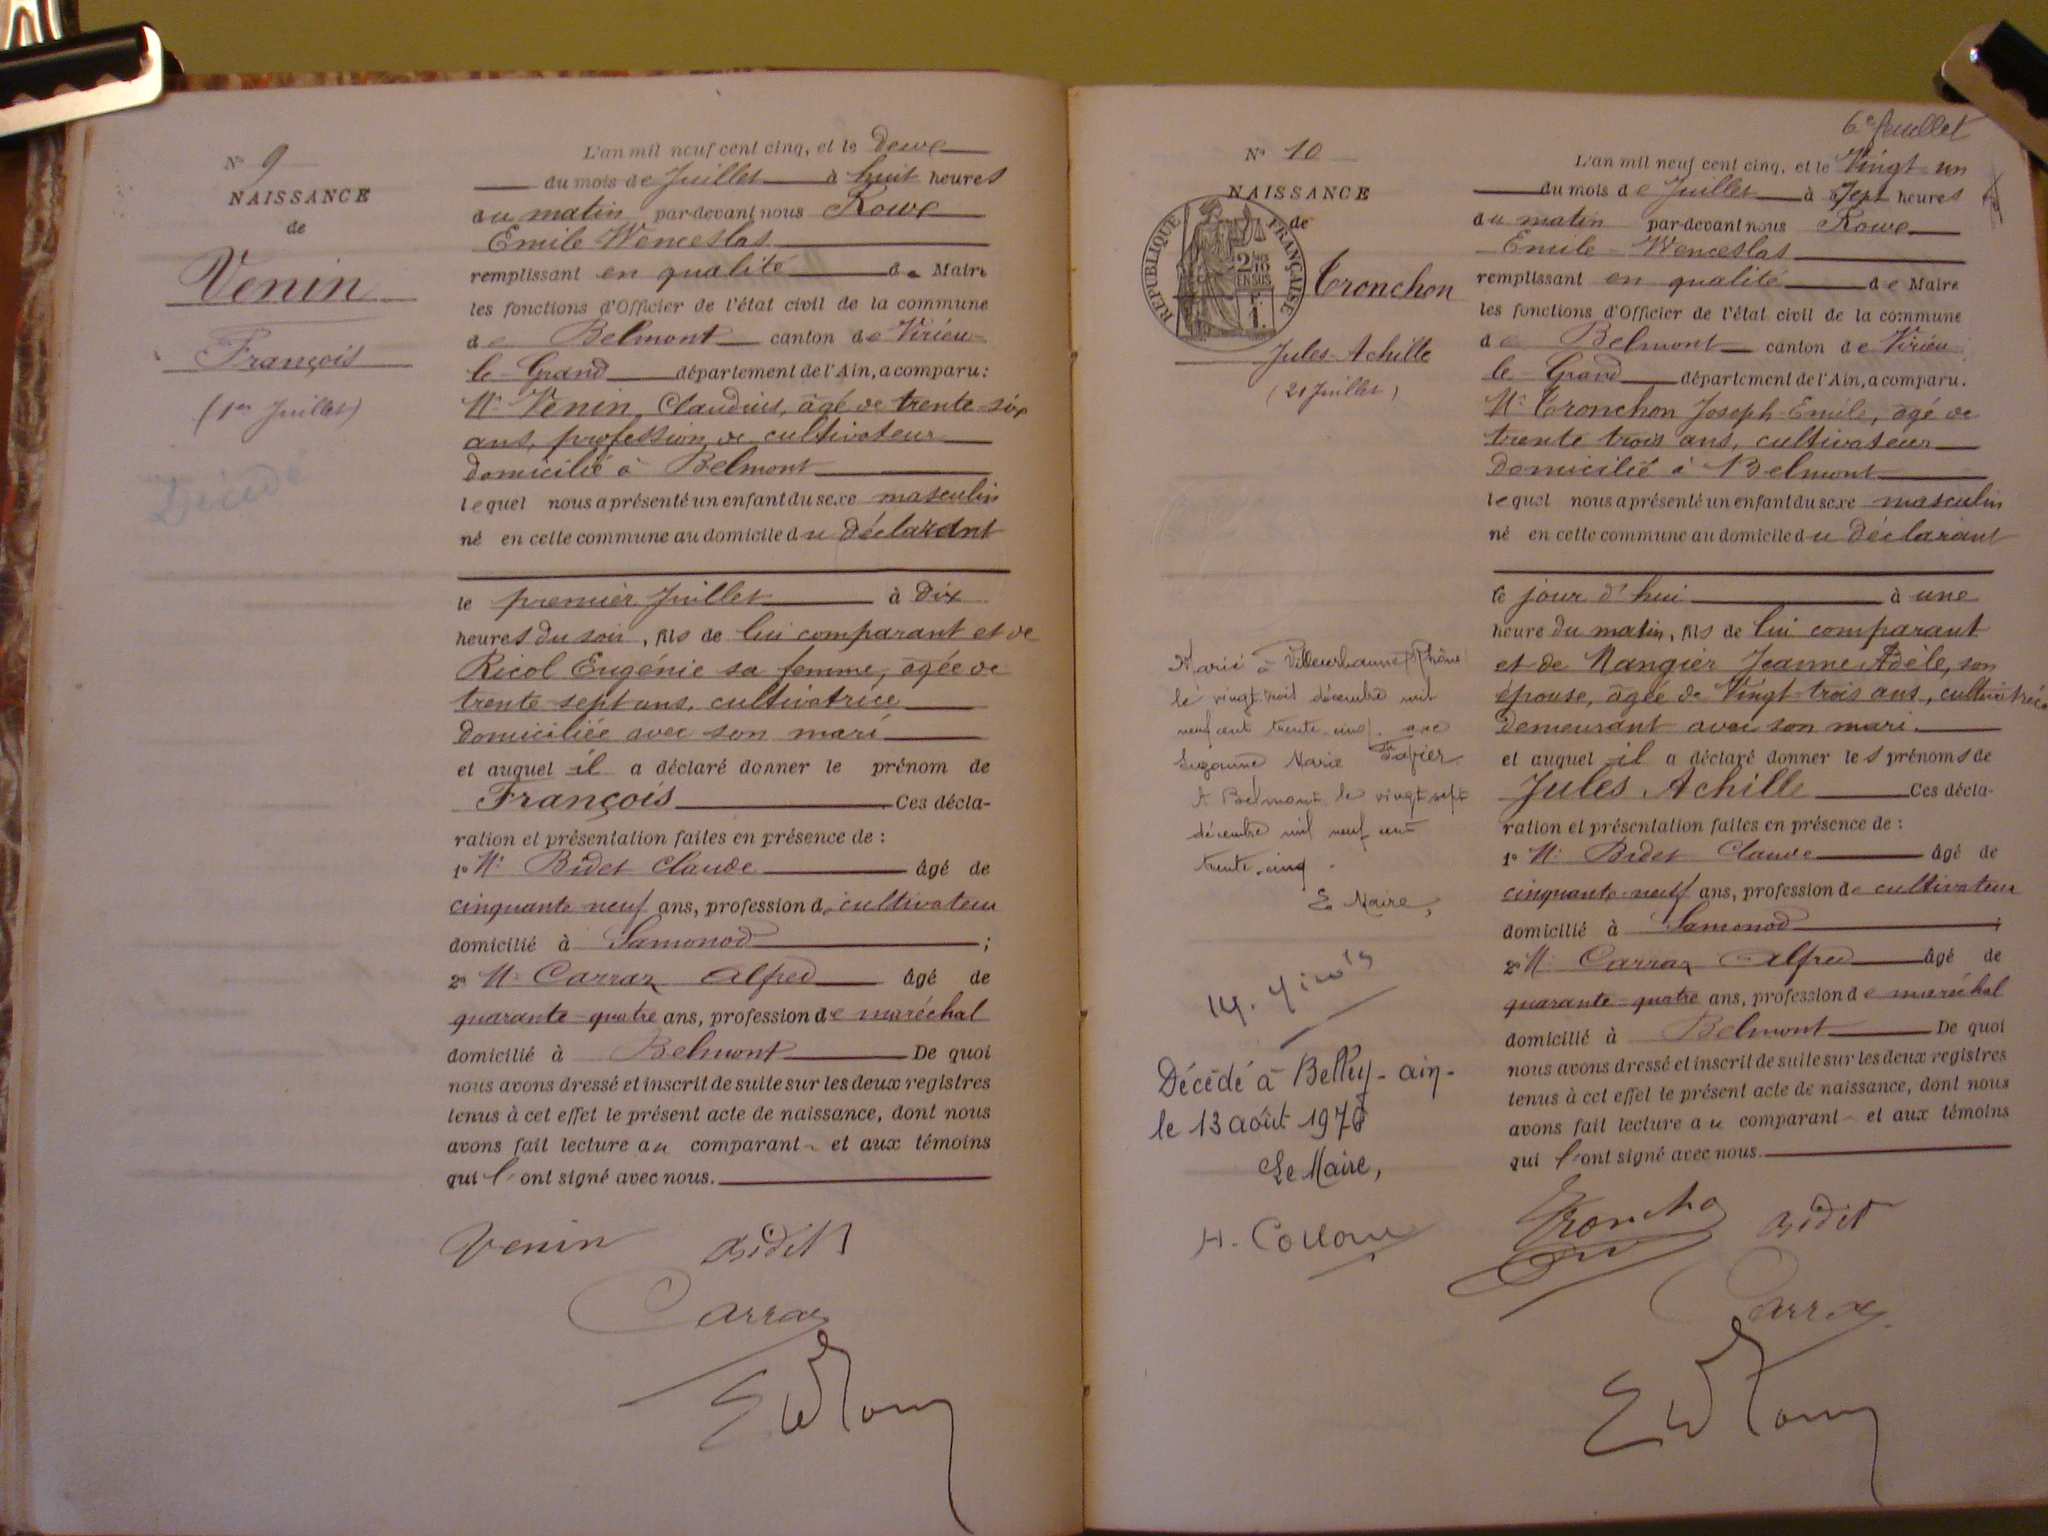 N° 9
NAISSANCE
de
Venin
François
(1er Juillet)
Décédé
L'an mil neuf cent cinq, et le deux
du mois de Juillet à huit heures
du matin par-devant nous Rowe
Emile Wenceslas
remplissant en qualité de Maire
les fonctions d'Officier de l'état civil de la commune
de Belmont canton de Virieu-
le-Grand département de l'Ain, a comparu:
Mr Venin, Claudius, âgé de trente-six
ans, profession de cultivateur
domicilié à Belmont
lequel nous a présenté un enfant du sexe masculin
né en cette commune au domicile du déclarant
le premier Juillet à dix
heures du soir, fils de lui comparant et de
Ricol Eugénie sa femme, âgée de
trente-sept ans, cultivatrice
domiciliée avec son mari
et auquel il a déclaré donner le prénom de
François Ces décla-
ration et présentation faites en présence de:
1° Mr Bidet Claude âgé de
cinquante-neuf ans, profession de cultivateur
domicilié à Samonod ;
2° Mr Carraz Alfred âgé de
quarante-quatre ans, profession de maréchal
domicilié à Belmont De quoi
nous avons dressé et inscrit de suite sur les deux registres
tenus à cet effet le présent acte de naissance, dont nous
avons fait lecture au comparant et aux témoins
qui l'ont signé avec nous.
Venin Bidet
Carraz
6e feuillet
N° 10
NAISSANCE
de
REPUBLIQUE FRANÇAISE
Tronchon
Jules-Achille
(21 Juillet)
L'an mil neuf cent cinq, et le Vingt-un
du mois de Juillet à Sept heures
du matin par-devant nous Rowe
Emile-Wenceslas
remplissant en qualité de Maire
les fonctions d'Officier de l'état civil de la commune
de Belmont canton de Virieu
le-Grand département de l'Ain, a comparu.
Mr Tronchon Joseph-Emile, âgé de
trente trois ans, cultivateur
domicilié à Belmont
lequel nous a présenté un enfant du sexe masculin
né en cette commune au domicile du déclarant
le jour d'hui à une
heure du matin, fils de lui comparant
et de Mangier Jeanne Adèle, son
épouse, âgée de Vingt-trois ans, cultivatrice
demeurant avec son mari.
et auquel il a déclaré donner les prénoms de
Jules Achille Ces décla-
ration et présentation faites en présence de:
1° Mr Bidet Claude âgé de
cinquante-neuf ans, profession de cultivateur
domicilié à Samonod ;
2° Mr Carraz Alfred âgé de
quarante-quatre ans, profession de maréchal
domicilié à Belmont De quoi
nous avons dressé et inscrit de suite sur les deux registres
tenus à cet effet le présent acte de naissance, dont nous
avons fait lecture au comparant et aux témoins
qui l'ont signé avec nous.
Marié à Villeurbanne (Rhône)
le vingt-trois décembre mil
neuf cent trente-cinq avec
Suzanne Marie
A Belmont le vingt sept
décembre mil neuf cent
trente-cinq.
Le Maire,
Décédé à Belley-ain-
le 13 août 1976
Le Maire,
Tronchon Bidet
Carraz